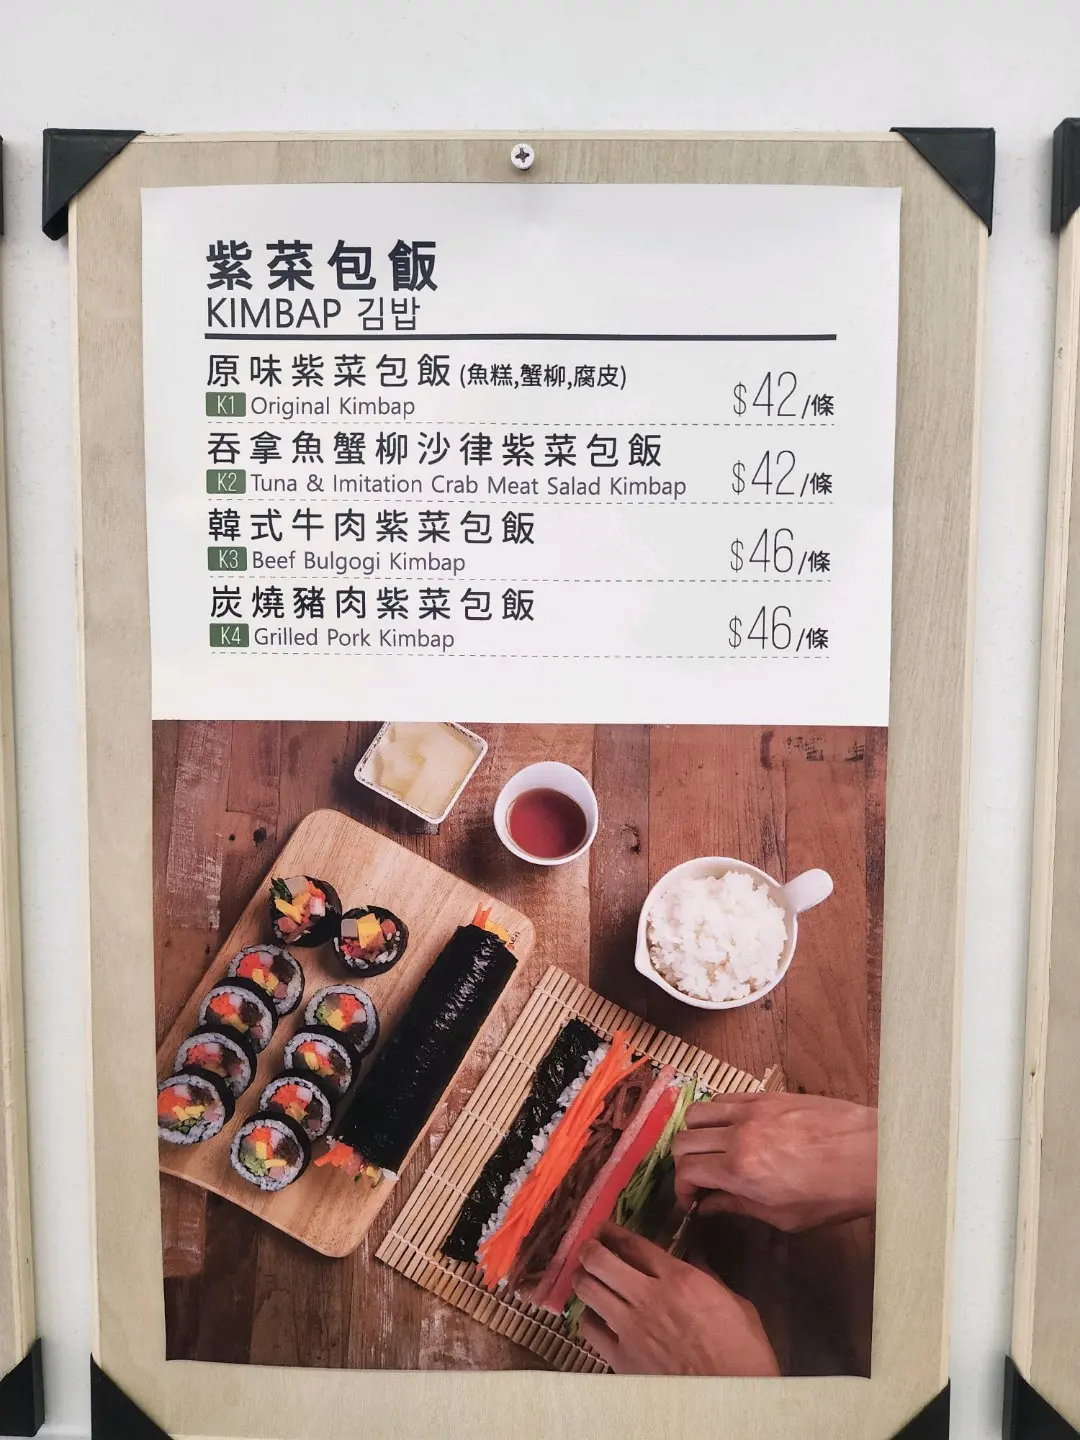 紫菜包飯
KIMBAP 김밥
原味紫菜包飯 (魚糕,蟹柳,腐皮)
K1 Original Kimbap $42/條
吞拿魚蟹柳沙律紫菜包飯
K2 Tuna & Imitation Crab Meat Salad Kimbap $42/條
韓式牛肉紫菜包飯
K3 Beef Bulgogi Kimbap $46/條
炭燒豬肉紫菜包飯
K4 Grilled Pork Kimbap $46/條